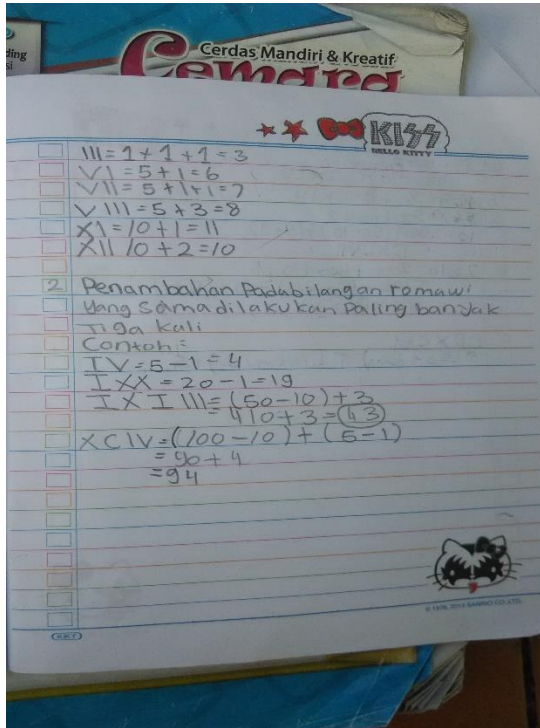 ding
si
Cerdas Mandiri & Kreatif
Cemara
KISS
HELLO KITTY
III = 1 + 1 + 1 = 3
VI = 5 + 1 = 6
VII = 5 + 1 + 1 = 7
VIII = 5 + 3 = 8
XI = 10 + 1 = 11
XII 10 + 2 = 10
2 Penambahan Padabilangan romawi
yang samadilakukan Paling banyak
Tiga kali
Contoh :
IV = 5 - 1 = 4
IXX = 20 - 1 = 19
IXIII = (50 - 10) + 3
= 410 + 3 = 43
XCIV = (100 - 10) + (5 - 1)
= 90 + 4
= 94